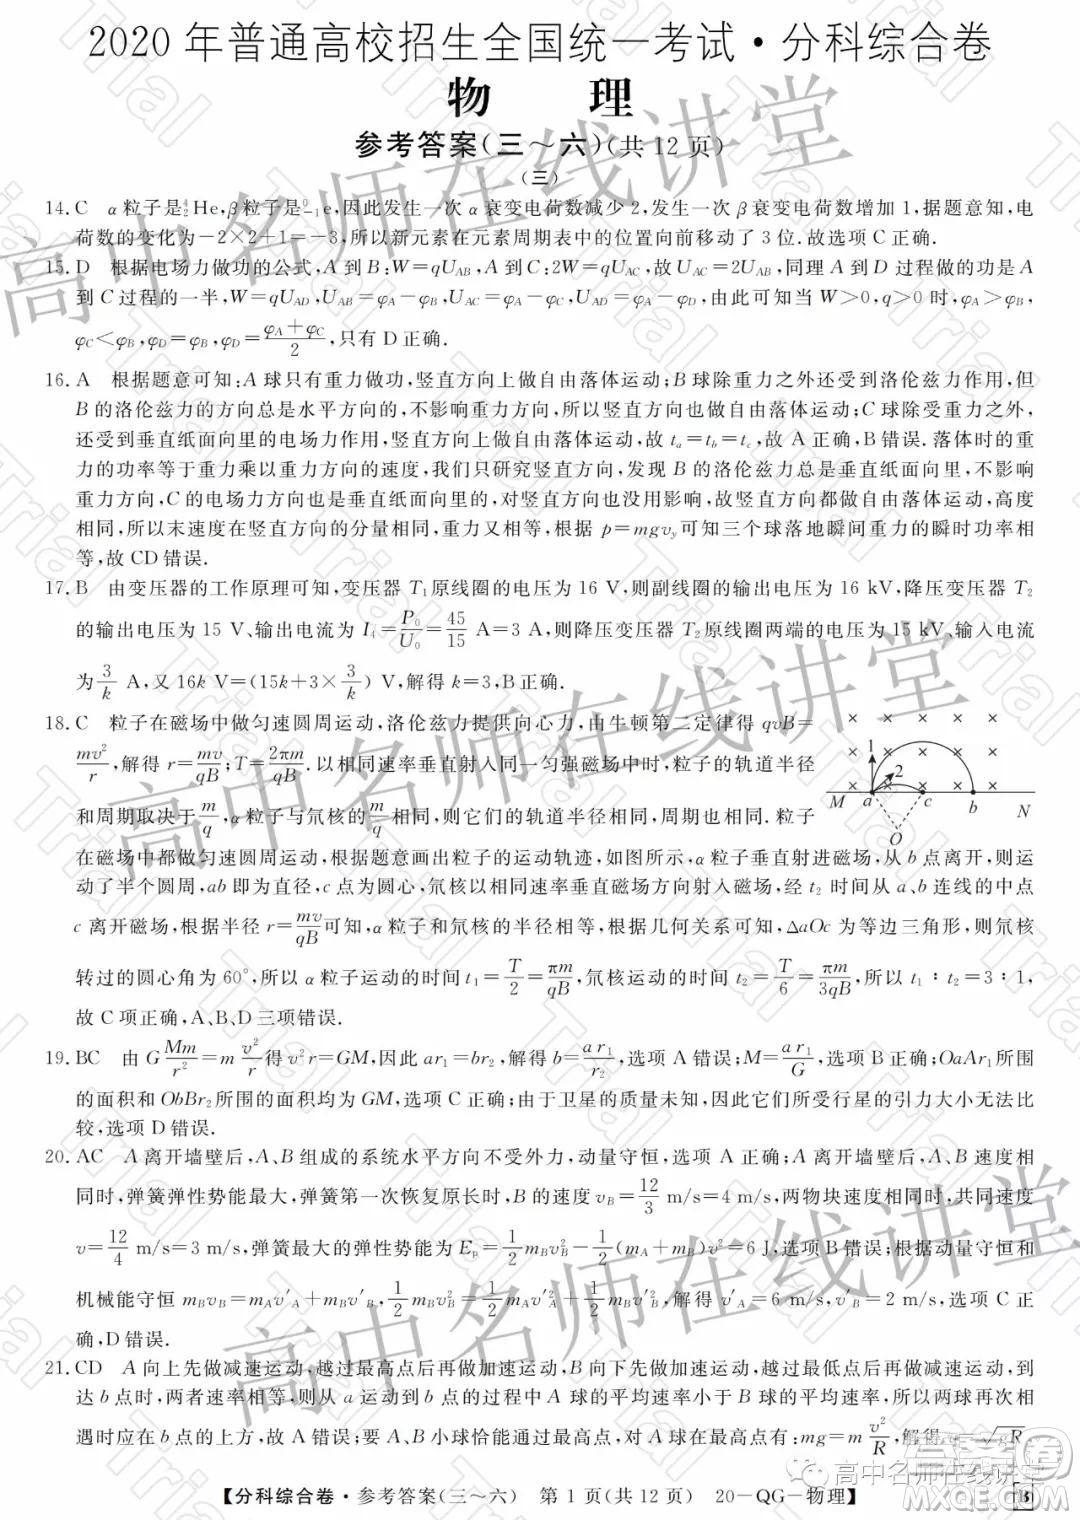 2020 年普通高校招生全国统一考试·分科综合卷
物 理
参考答案(三～六)(共 12 页)
(三)
14. C α粒子是⁴₂He,β粒子是⁰₋₁e,因此发生一次 α 衰变电荷数减少 2,发生一次 β 衰变电荷数增加 1,据题意知,电
荷数的变化为-2×2+1=-3,所以新元素在元素周期表中的位置向前移动了 3 位.故选项 C 正确.
15. D 根据电场力做功的公式,A 到 B:W=qU_AB,A 到 C:2W=qU_AC,故U_AC=2U_AB,同理 A 到 D 过程做的功是 A
到 C 过程的一半,W=qU_AD,U_AB=φ_A-φ_B,U_AC=φ_A-φ_C,U_AD=φ_A-φ_D,由此可知当 W>0,q>0 时,φ_A>φ_B,
φ_C<φ_B,φ_D=φ_B,φ_D=(φ_A+φ_C)/2,只有 D 正确.
16. A 根据题意可知:A 球只有重力做功,竖直方向上做自由落体运动;B 球除重力之外还受到洛伦兹力作用,但
B 的洛伦兹力的方向总是水平方向的,不影响重力方向,所以竖直方向也做自由落体运动;C 球除受重力之外,
还受到垂直纸面向里的电场力作用,竖直方向上做自由落体运动,故 t_a=t_b=t_c,故 A 正确,B 错误.落体时的重
力的功率等于重力乘以重力方向的速度,我们只研究竖直方向,发现 B 的洛伦兹力总是垂直纸面向里的,不影
响重力方向,C 的电场力方向也是垂直纸面向里的,对竖直方向也没用影响,故竖直方向都是自由落体运动,高度
相同,所以末速度在竖直方向的分量相同,重力又相等,根据 p=mgv_y可知三个球落地瞬间重力的瞬时功率相
等,故 CD 错误.
17. B 由变压器的工作原理可知,变压器 T₁原线圈的电压为 16 V,则副线圈的输出电压为 16 kV,降压变压器 T₂
的输出电压为 15 V、输出电流为 I₄=P₀/U₀=45/15 A=3 A,则降压变压器 T₂原线圈两端的电压为 15 kV、输入电流
为3/k A,又 16k V=(15k+3×3/k) V,解得 k=3,B正确.
18. C 粒子在磁场中做匀速圆周运动,洛伦兹力提供向心力,由牛顿第二定律得 qvB=
mv²/r,解得 r=mv/qB;T=2πm/qB.以相同速率垂直射入同一匀强磁场中时,粒子的轨道半径
和周期取决于m/q,α粒子与氘核的m/q相同,则它们的轨道半径相同、周期也相同.粒子
在磁场中都做匀速圆周运动,根据题意画出粒子的运动轨迹,如图所示,α 粒子垂直射进磁场,从 b 点离开,则运
动了半个圆周,ab 即为直径,c 点为圆心,氘核以相同速率垂直磁场方向射入磁场,经 t₂ 时间从 a、b 连线的中点
c 离开磁场,根据半径 r=mv/qB可知,α 粒子和氘核的半径相等,根据几何关系可知,△aOc 为等边三角形,则氘核
转过的圆心角为 60°,所以 α 粒子运动的时间 t₁=T/2=πm/qB,氘核运动的时间 t₂=T/6=πm/3qB,所以 t₁∶t₂=3∶1,
故 C 项正确,A、B、D 三项错误.
1
2
M a c b N
O
19. BC 由 G Mm/r²=m v²/r得 v²r=GM,因此 ar₁=br₂,解得 b=ar₁/r₂,选项 A 错误;M=ar₁/G,选项 B 正确;OaAr₁所围
的面积和 ObBr₂所围的面积均为 GM,选项 C 正确;由于卫星的质量未知,因此它们所受行星的引力大小无法比
较,选项 D 错误.
20. AC A 离开墙壁后,A、B 组成的系统水平方向不受外力,动量守恒,选项 A 正确;A 离开墙壁后,A、B 速度相
同时,弹簧弹性势能最大,弹簧第一次恢复原长时,B 的速度 v_B=12/3 m/s=4 m/s,两物块速度相同时,共同速度
v=12/4 m/s=3 m/s,弹簧最大的弹性势能为 E_p=1/2 m_Bv_B²-1/2(m_A+m_B)v²=6 J,选项 B 错误;根据动量守恒和
机械能守恒 m_Bv_B=m_Av′_A+m_Bv′_B,1/2 m_Bv_B²=1/2 m_Av′_A²+1/2 m_Bv′_B²,解得 v′_A=6 m/s,v′_B=2 m/s,选项 C正
确,D 错误.
21. CD A 向上先做减速运动,越过最高点后再做加速运动,B 向下先做加速运动,越过最低点后再做减速运动,到
达 b 点时,两者速率相等,则从 a 运动到 b 点的过程中 A 球的平均速率小于 B 球的平均速率,所以两球再次相
遇时应在 b 点的上方,故 A 错误;要 A、B 小球恰能通过最高点,对 A 球在最高点有:mg=m v²/R,解得 v=√gR
【分科综合卷·参考答案(三～六) 第 1 页(共 12 页) 20-QG-物理】
B
高中名师在线讲堂
高中名师在线讲堂
高中名师在线讲堂
高中名师在线讲堂
Trial
答案圈
MXQE.COM